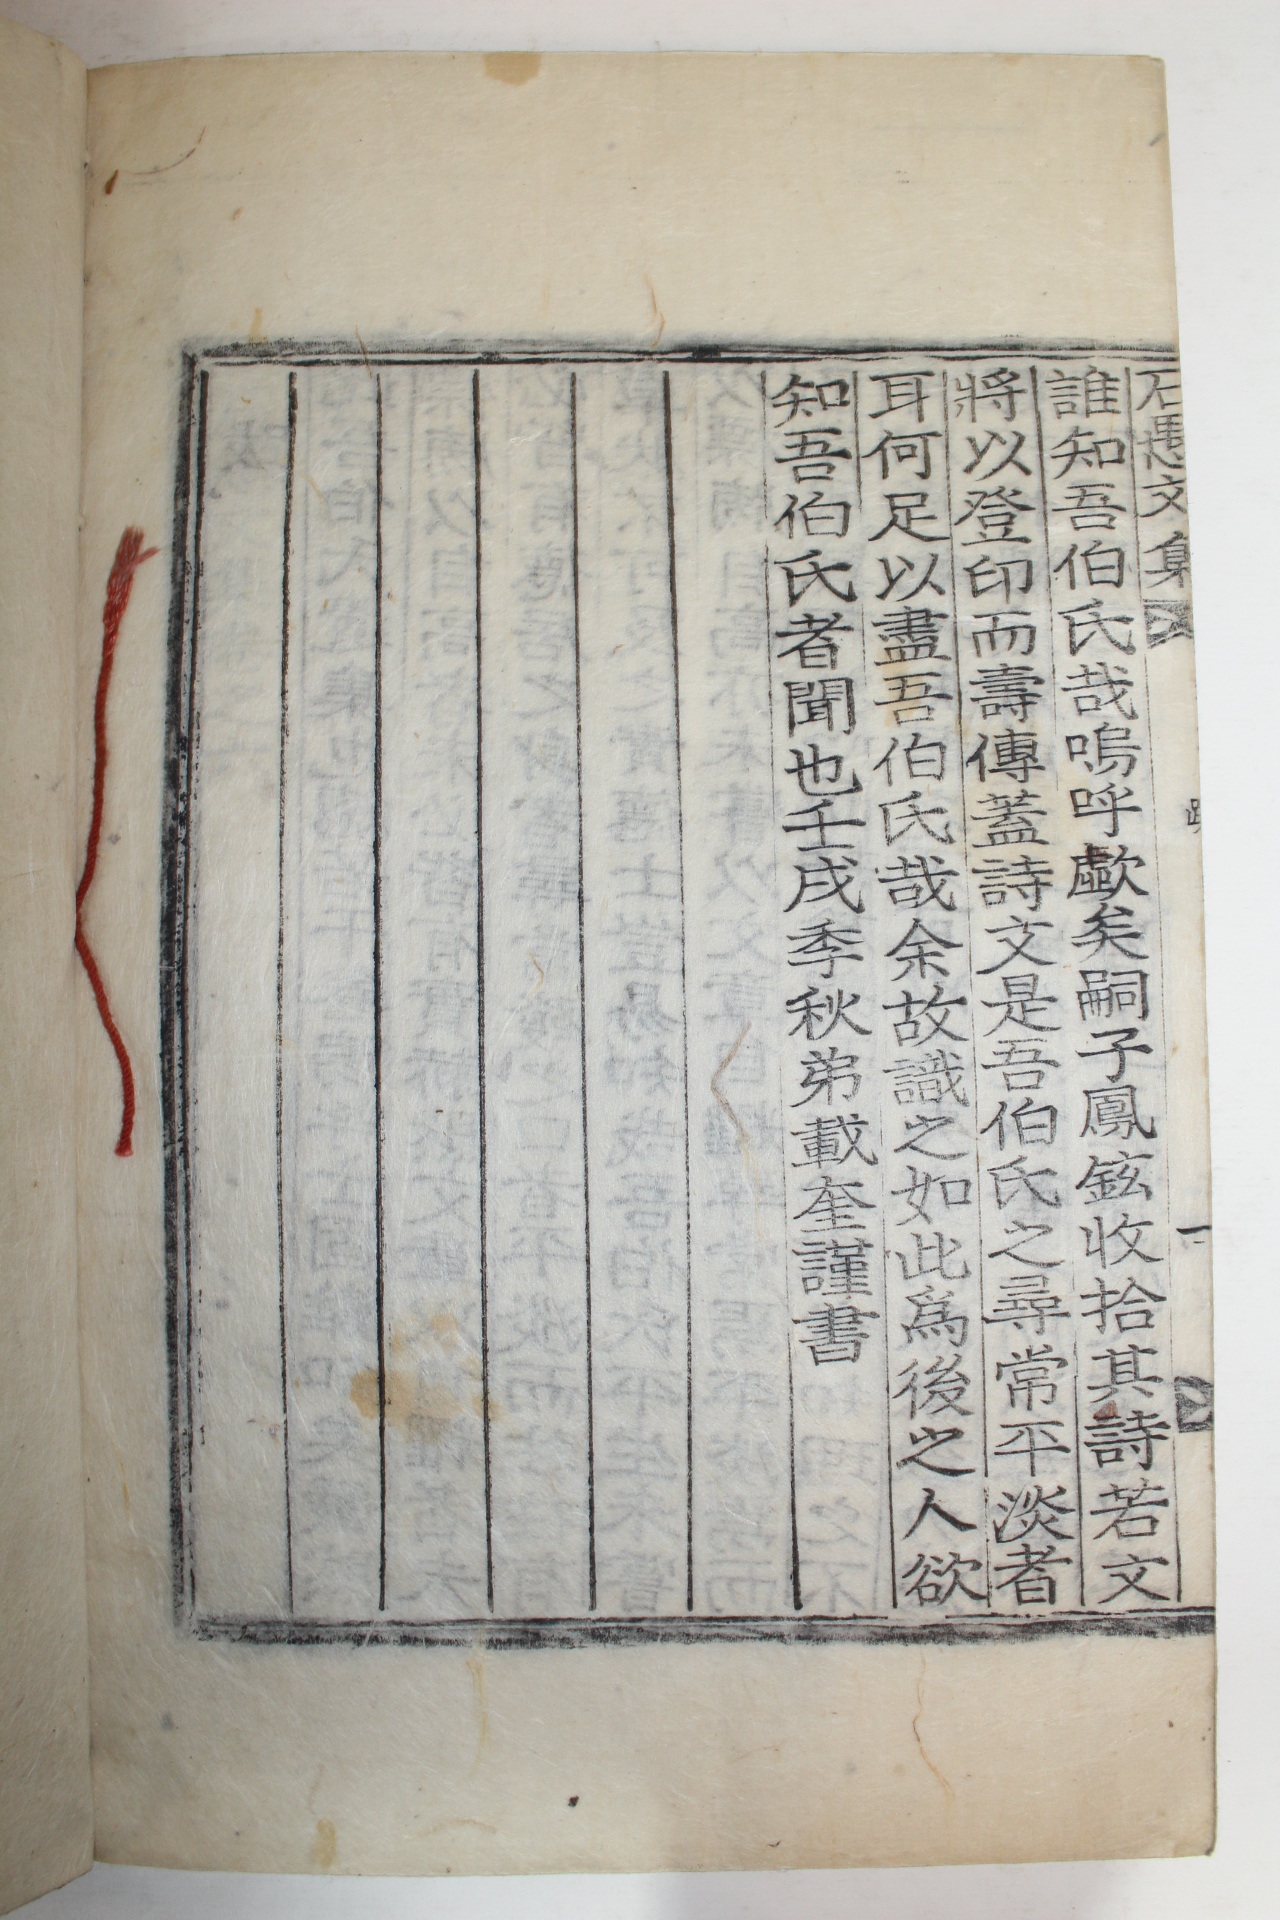 石愚文集
跋
一
誰知吾伯氏哉嗚呼歔矣嗣子鳳鉉收拾其詩若文
將以登印而壽傳蓋詩文是吾伯氏之尋常平淡者
耳何足以盡吾伯氏哉余故識之如此爲後之人欲
知吾伯氏者聞也壬戌季秋弟載奎謹書